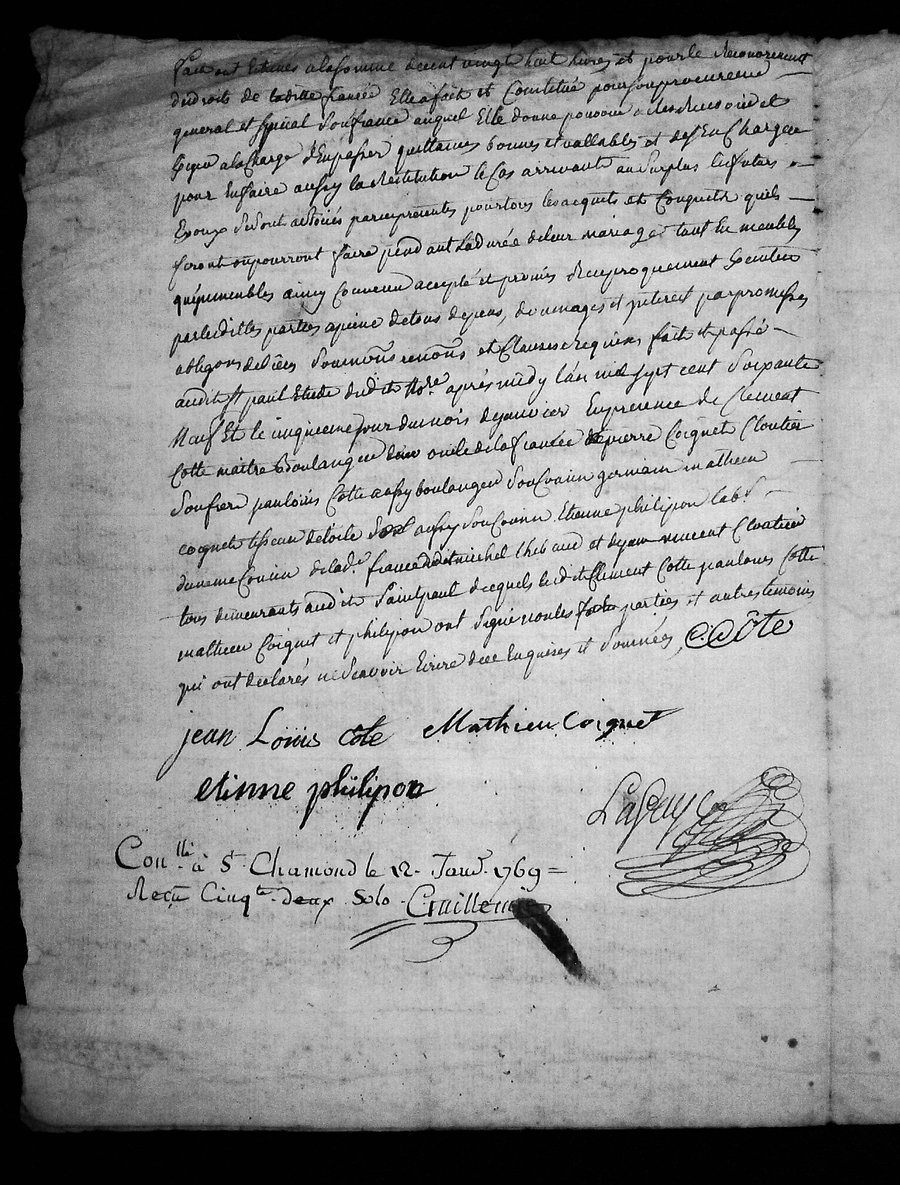 faie ont Estimés alasomme decent vingt huit livres et pour le Recouvrement
dudroits de laditte fiancée Elle a fait et Constitué pour son procureur
general et spécial Son fiancé auquel Elle donne pouvoir de
ala Charge d'En passer quittances bonnes et vallables et des En Charger
pour En faire aussy la Restitution le Cas arrivant au Surplus les futurs
Epoux Se Sont associés par ces presentes pour tous les acquets et Conquets quils
feront ou pourront faire pendant La durée de leur mariage tant En meubles
qu'immeubles ainsy Convenu accepté et promis Reciproquement
par lesdittes parties apeine de tous depens, dommages et interest par promesses
obligons de biens Soumons renons et Clauses requises fait et passé
audit St paul Etude dudit No.re après midy l'an mil Sept Cent Soixante
Neuf Et le cinquieme jour du mois de janvier En presence de Clement
Cotte maitre Boulanger oncle de la fiancée de pierre Coignet Cloutier
Son frere jean louis Cotte aussy boulanger Son Cousin germain mathieu
coignet tisseur de toile aussy Son Cousin Etienne philipon lab.r
du meme Cousin de lad.e fiancée de michel thibaud et de jean vincent Cloutier
tous demeurants audit Saint paul desquels ledit Clement Cotte jean louis Cotte
mathieu Coignet et philipon ont Signé non les parties et autres temoins
qui ont declarés ne Scavoir Ecrire de ce Enquises et Sommées, C. Côte
jean Louis côte Mathieu Coignet
etienne philipon
Lagruy
Con.llé à St Chamond le 12 Janv. 1769 =
Reçu Cinq.te deux Sols